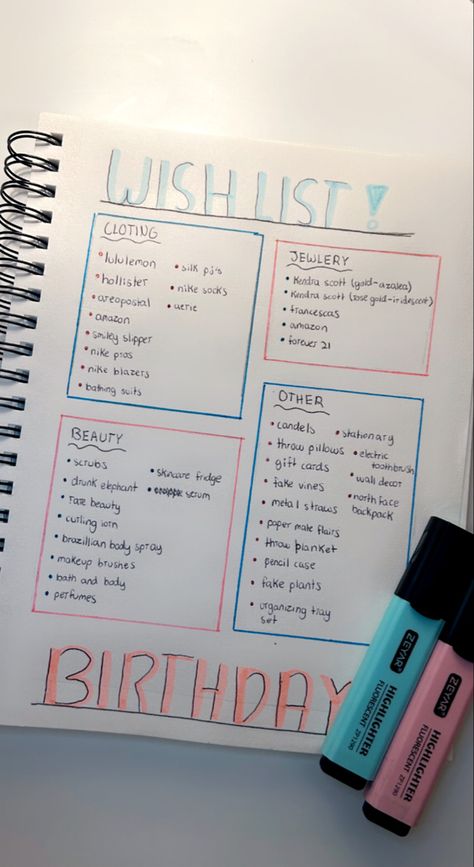 WISH LIST!
CLOTING
lululemon
hollister
areopostal
amazon
smiley slipper
nike pros
nike blazers
bathing suits
silk pj's
nike socks
aerie
JEWLERY
Kendra scott (gold-azalea)
Kendra scott (rose gold-iridescent)
francescas
amazon
forever 21
BEAUTY
scrubs
drunk elephant
rare beauty
curling iron
brazillian body spray
makeup brushes
bath and body
perfumes
skincare fridge
serum
OTHER
candels
throw pillows
gift cards
fake vines
metal straws
paper mate flairs
throw blanket
pencil case
fake plants
organizing tray
set
stationary
electric
toothbrush
wall decor
north face
backpack
BIRTHDAY
ZEYAR
HIGHLIGHTER
FLUORESCENT ZP1290
ZEYAR
HIGHLIGHTER
FLUORESCENT ZP1290